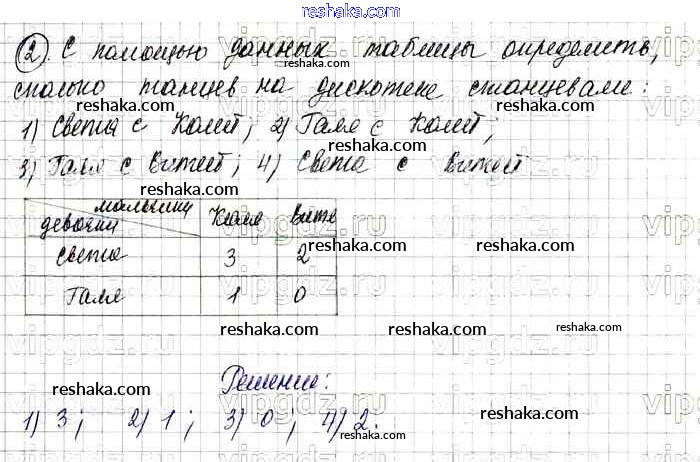 reshaka.com
2). С помощью данных таблицы определить,
reshaka.com
сколько танцев на дискотеке станцевали:
reshaka.com reshaka.com
1) Света с Колей; 2) Галя с Колей;
3) Галя с Витей; 4) Света с Витей
reshaka.com reshaka.com
мальчики
девочки Коля Витя
reshaka.com reshaka.com
Света 3 2
Галя 1 0
reshaka.com reshaka.com
vipgdz.ru vipgdz.ru
Решение:
reshaka.com reshaka.com
1) 3; 2) 1; 3) 0; 4) 2.
reshaka.com reshaka.com